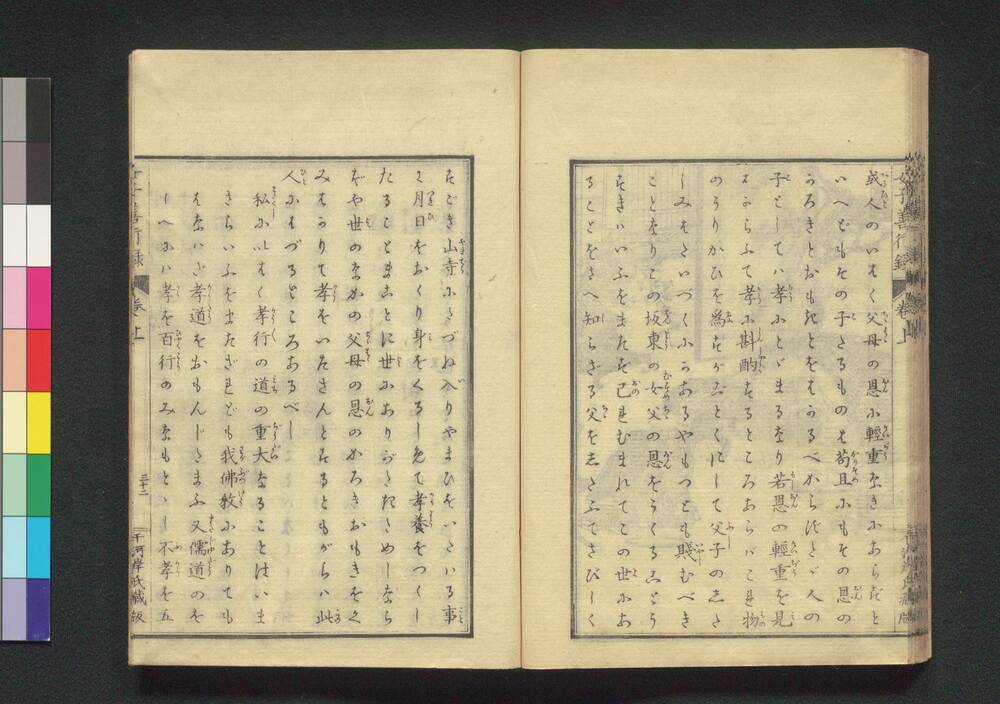 或人のいはく父母の恩に輕重なきにあらずと
いへどもその子たるものは苟且にもその恩の
かろきとおもきとをはかるべからずたゞ人の
子としては孝にとゞまるなり若恩の輕重を見
はからふて孝に斟酌するところあらバこれ物
のうりかひを為すがごとくにして父子の
しみはいづくにかあるやもつとも賤むべき
ことなりこの坂東の女父の恩をうくる
すきはひふをまたず已れむまれてこの世にお
ることをさへ知らざる父をしたふてさびしく
女子善行録 卷上
すごき山寺にたづね入りやまひをいたはる事
月日をおくり身をくるしめて孝養をつくし
たることまことに世にありがたきためしなら
ずや世のなかの父母の恩のかろきおもきをく
みはかりて孝をいたさんとするともがらハ此
人にはづるところあるべし
私にいはく孝行の道の重大なることはいま
さらいふをまたざれども我佛教にありても
はなハだ孝道をおもんじたまふ又儒道のを
しへにハ孝を百行のみなもとゝし不孝を五
女子善行録 卷上 三十二 千河岸氏藏版